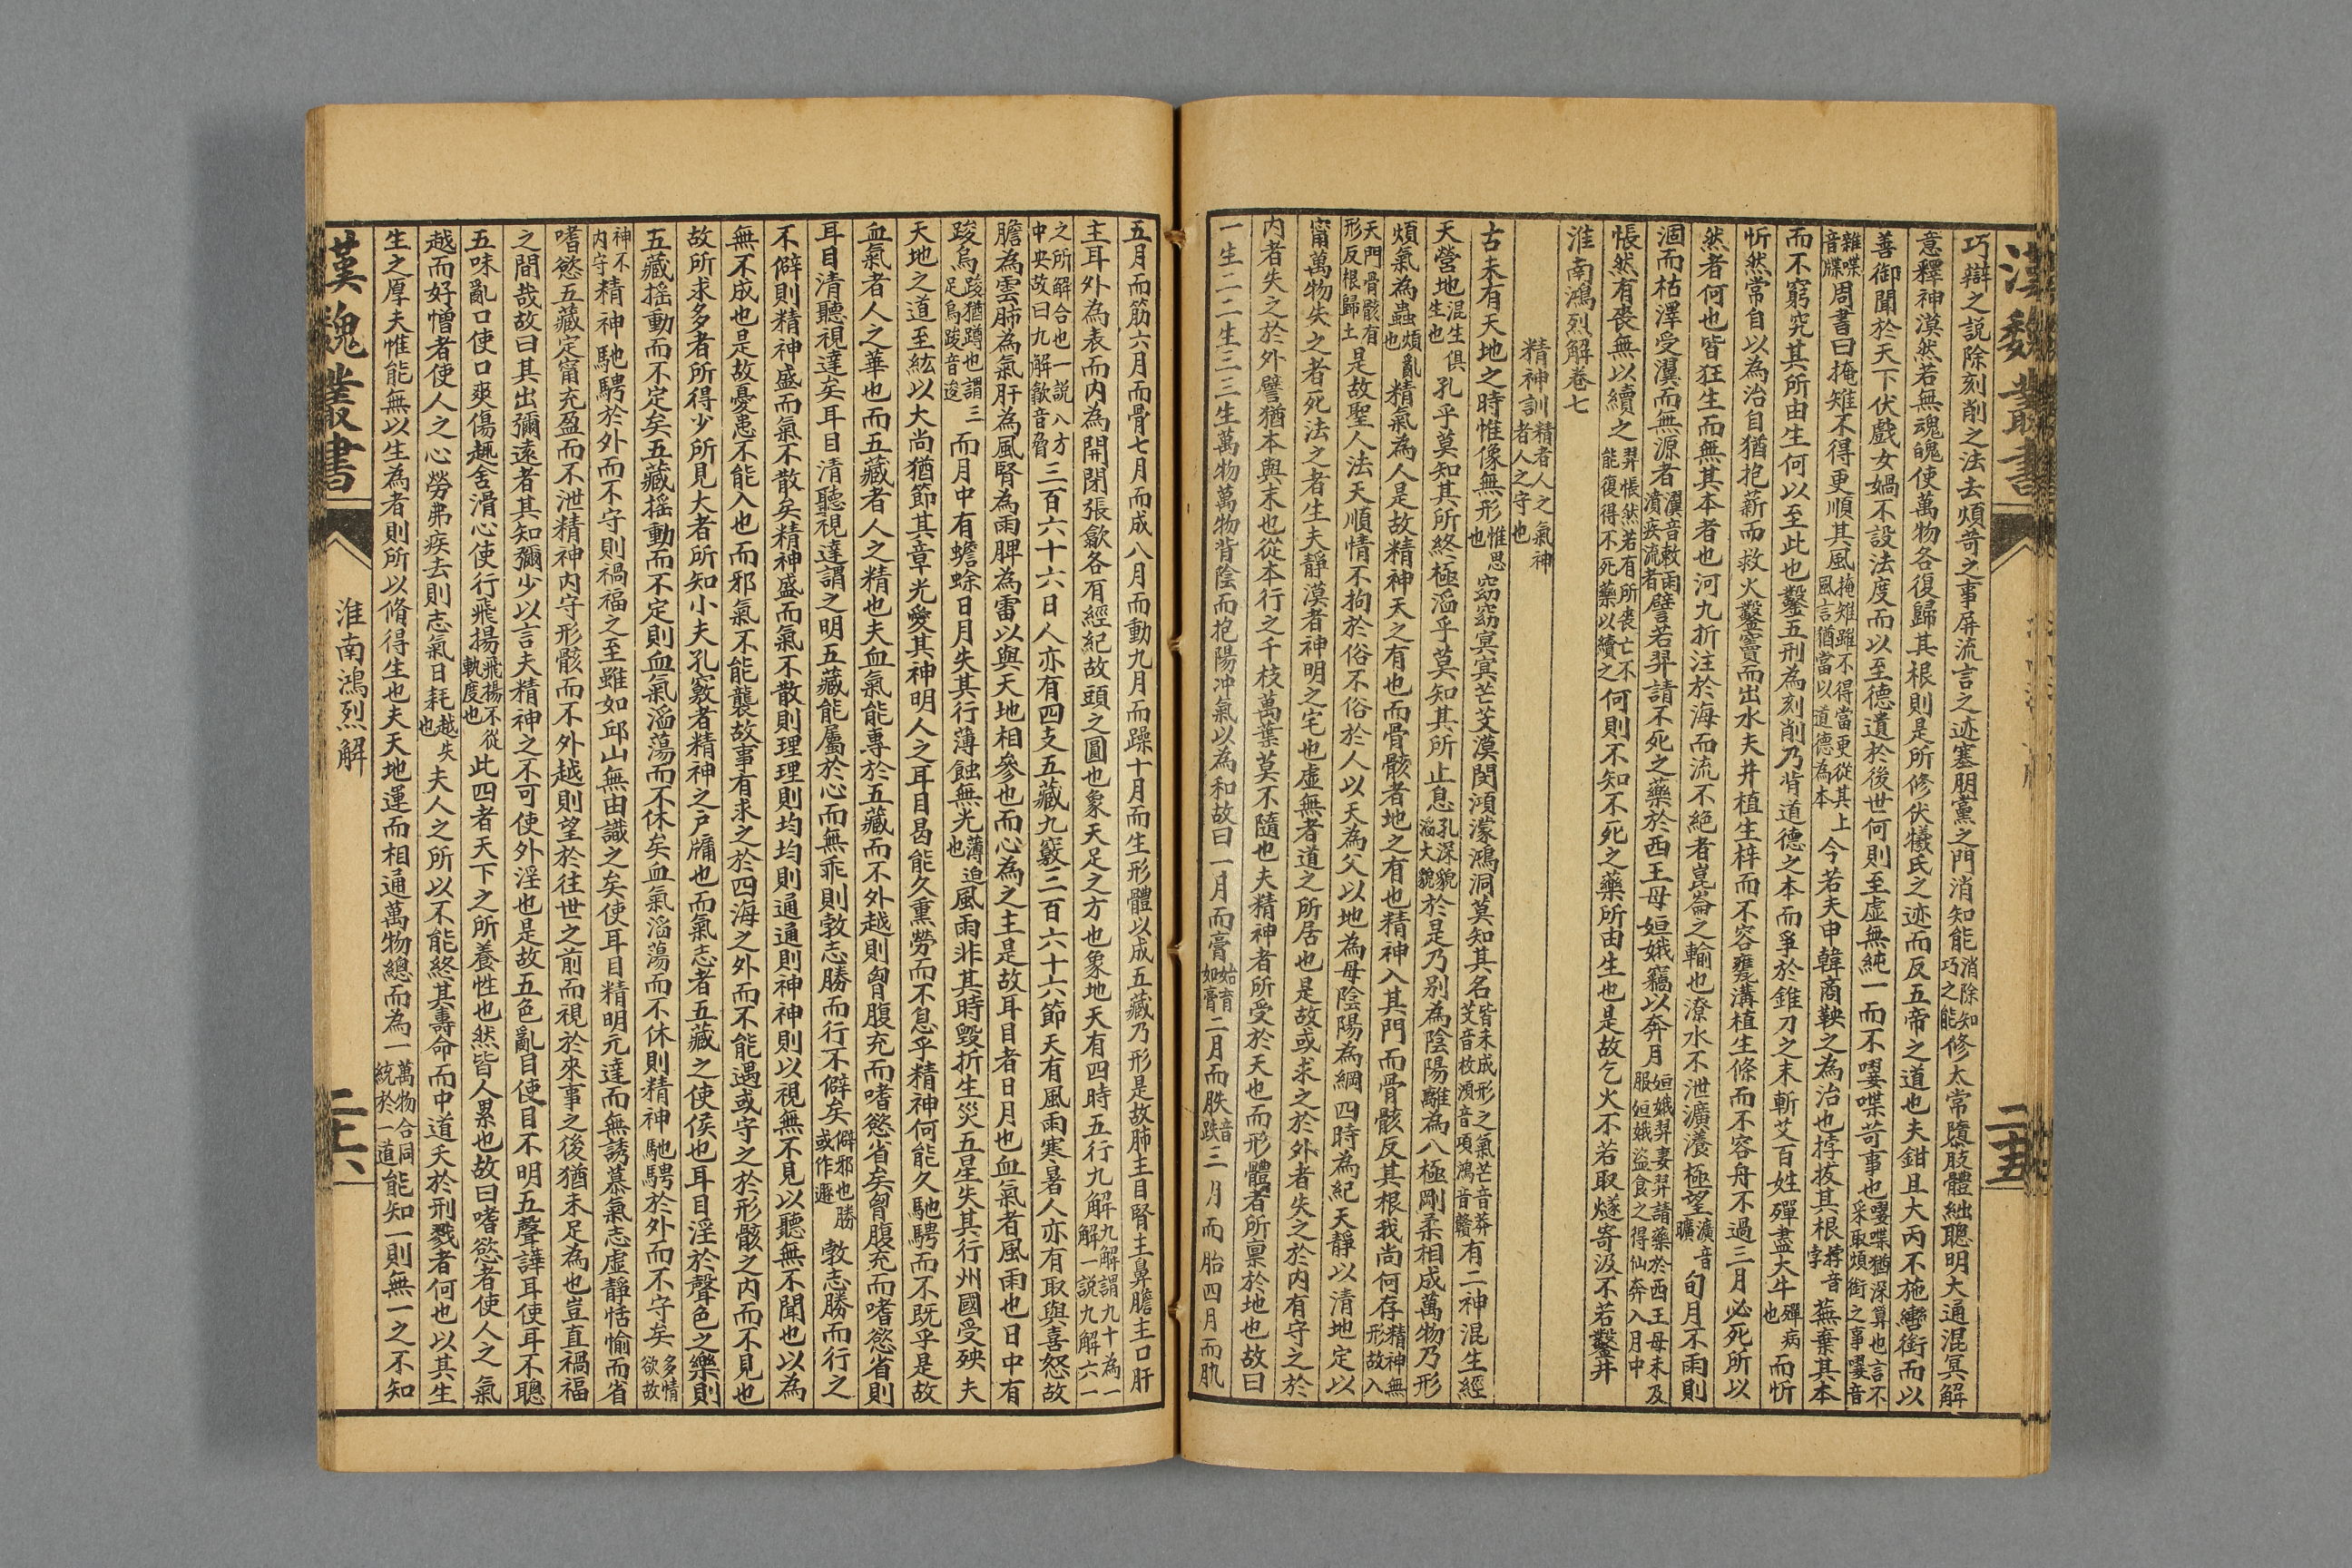 漢魏叢書
二十五
巧辯之説除刻削之法去煩苛之事屏流言之迹塞朋黨之門消知能消除知巧之能修太常隳肢體絀聰明大通混冥解
意釋神漠然若無魂魄使萬物各復歸其根則是所修伏犧氏之迹而反五帝之道也夫鉗且大丙不施轡銜而以
善御聞於天下伏戲女媧不設法度而以至德遺於後世何則至虚無純一而不嘤喋苛事也嘤喋猶深算也言不采取煩銜之事嘤音
雜喋音牒周書曰掩雉不得更順其風掩雉雖不得當更從其上風言猶當以道德為本今若夫申韓商鞅之為治也挬拔其根挬音孛蕪棄其本
而不窮究其所由生何以至此也鑿五刑為刻削乃背道德之本而爭於錐刀之末斬艾百姓殫盡大牛殫病也而忻
忻然常自以為治自猶抱薪而救火鑿竇而出水夫井植生梓而不容甕溝植生條而不容舟不過三月必死所以
然者何也皆狂生而無其本者也河九折注於海而流不絶者崑崙之輸也潦水不泄瀇瀁極望瀇音曠旬月不雨則
涸而枯澤受瀷而無源者瀷音敕雨濆疾流者譬若羿請不死之藥於西王母姮娥竊以奔月姮娥羿妻羿請藥於西王母未及服姮娥盜食之得仙奔入月中
悵然有喪無以續之羿悵然若有所喪亡不能復得不死藥以續之何則不知不死之藥所由生也是故乞火不若取燧寄汲不若鑿井
淮南鴻烈解卷七
精神訓精者人之氣神者人之守也
古未有天地之時惟像無形惟思也窈窈冥冥芒芠漠閔澒濛鴻洞莫知其名皆未成形之氣芒音莽芠音枚澒音項鴻音贛有二神混生經
天營地混生俱生也孔乎莫知其所終極滔乎莫知其所止息孔深貌滔大貌於是乃别為陰陽離為八極剛柔相成萬物乃形
煩氣為蟲煩亂也精氣為人是故精神天之有也而骨骸者地之有也精神入其門而骨骸反其根我尚何存精神無形故入
天門骨骸有形反根歸土是故聖人法天順情不拘於俗不俗於人以天為父以地為母陰陽為綱四時為紀天靜以清地定以
甯萬物失之者死法之者生夫靜漠者神明之宅也虛無者道之所居也是故或求之於外者失之於内有守之於
内者失之於外譬猶本與末也從本行之千枝萬葉莫不隨也夫精神者所受於天也而形體者所禀於地也故曰
一生二二生三三生萬物萬物背陰而抱陽冲氣以為和故曰一月而膏始育如膏二月而胅音跌三月而胎四月而肌
五月而筋六月而骨七月而成八月而動九月而躁十月而生形體以成五藏乃形是故肺主目腎主鼻膽主口肝
主耳外為表而内為開閉張歙各有經紀故頭之圓也象天足之方也象地天有四時五行九解九解謂九十為一解一説九解六一
之所解合也一説八方中央故曰九解歙音脅三百六十六日人亦有四支五藏九竅三百六十六節天有風雨寒暑人亦有取與喜怒故
膽為雲肺為氣肝為風腎為雨脾為雷以與天地相參也而心為之主是故耳目者日月也血氣者風雨也日中有
踆烏踆猶蹲也謂三足烏踆音逡而月中有蟾蜍日月失其行薄蝕無光薄迫也風雨非其時毁折生災五星失其行州國受殃夫
天地之道至紘以大尚猶節其章光愛其神明人之耳目曷能久熏勞而不息乎精神何能久馳騁而不既乎是故
血氣者人之華也而五藏者人之精也夫血氣能專於五藏而不外越則胷腹充而嗜慾省矣胷腹充而嗜慾省則
耳目清聽視達矣耳目清聽視達謂之明五藏能屬於心而無乖則㪍志勝而行不僻矣僻邪也勝或作遯㪍志勝而行之
不僻則精神盛而氣不散矣精神盛而氣不散則理理則均均則通通則神神則以視無不見以聽無不聞也以為
無不成也是故憂患不能入也而邪氣不能襲故事有求之於四海之外而不能遇或守之於形骸之内而不見也
故所求多者所得少所見大者所知小夫孔竅者精神之户牖也而氣志者五藏之使侯也耳目淫於聲色之樂則
五藏摇動而不定矣五藏摇動而不定則血氣滔蕩而不休矣血氣滔蕩而不休則精神馳騁於外而不守矣多情欲故
神不内守精神馳騁於外而不守則禍福之至雖如邱山無由識之矣使耳目精明元達而無誘慕氣志虚靜恬愉而省
嗜慾五藏定甯充盈而不泄精神内守形骸而不外越則望於往世之前而視於來事之後猶未足為也豈直禍福
之間哉故曰其出彌遠者其知彌少以言夫精神之不可使外淫也是故五色亂目使目不明五聲譁耳使耳不聰
五味亂口使口爽傷趣舍滑心使行飛揚飛揚不從軌度也此四者天下之所養性也然皆人累也故曰嗜慾者使人之氣
越而好憎者使人之心勞弗疾去則志氣日耗越失也夫人之所以不能終其壽命而中道夭於刑戮者何也以其生
生之厚夫惟能無以生為者則所以脩得生也夫天地運而相通萬物總而為一萬物合同統於一道能知一則無一之不知
漢魏叢書
淮南鴻烈解
二十六